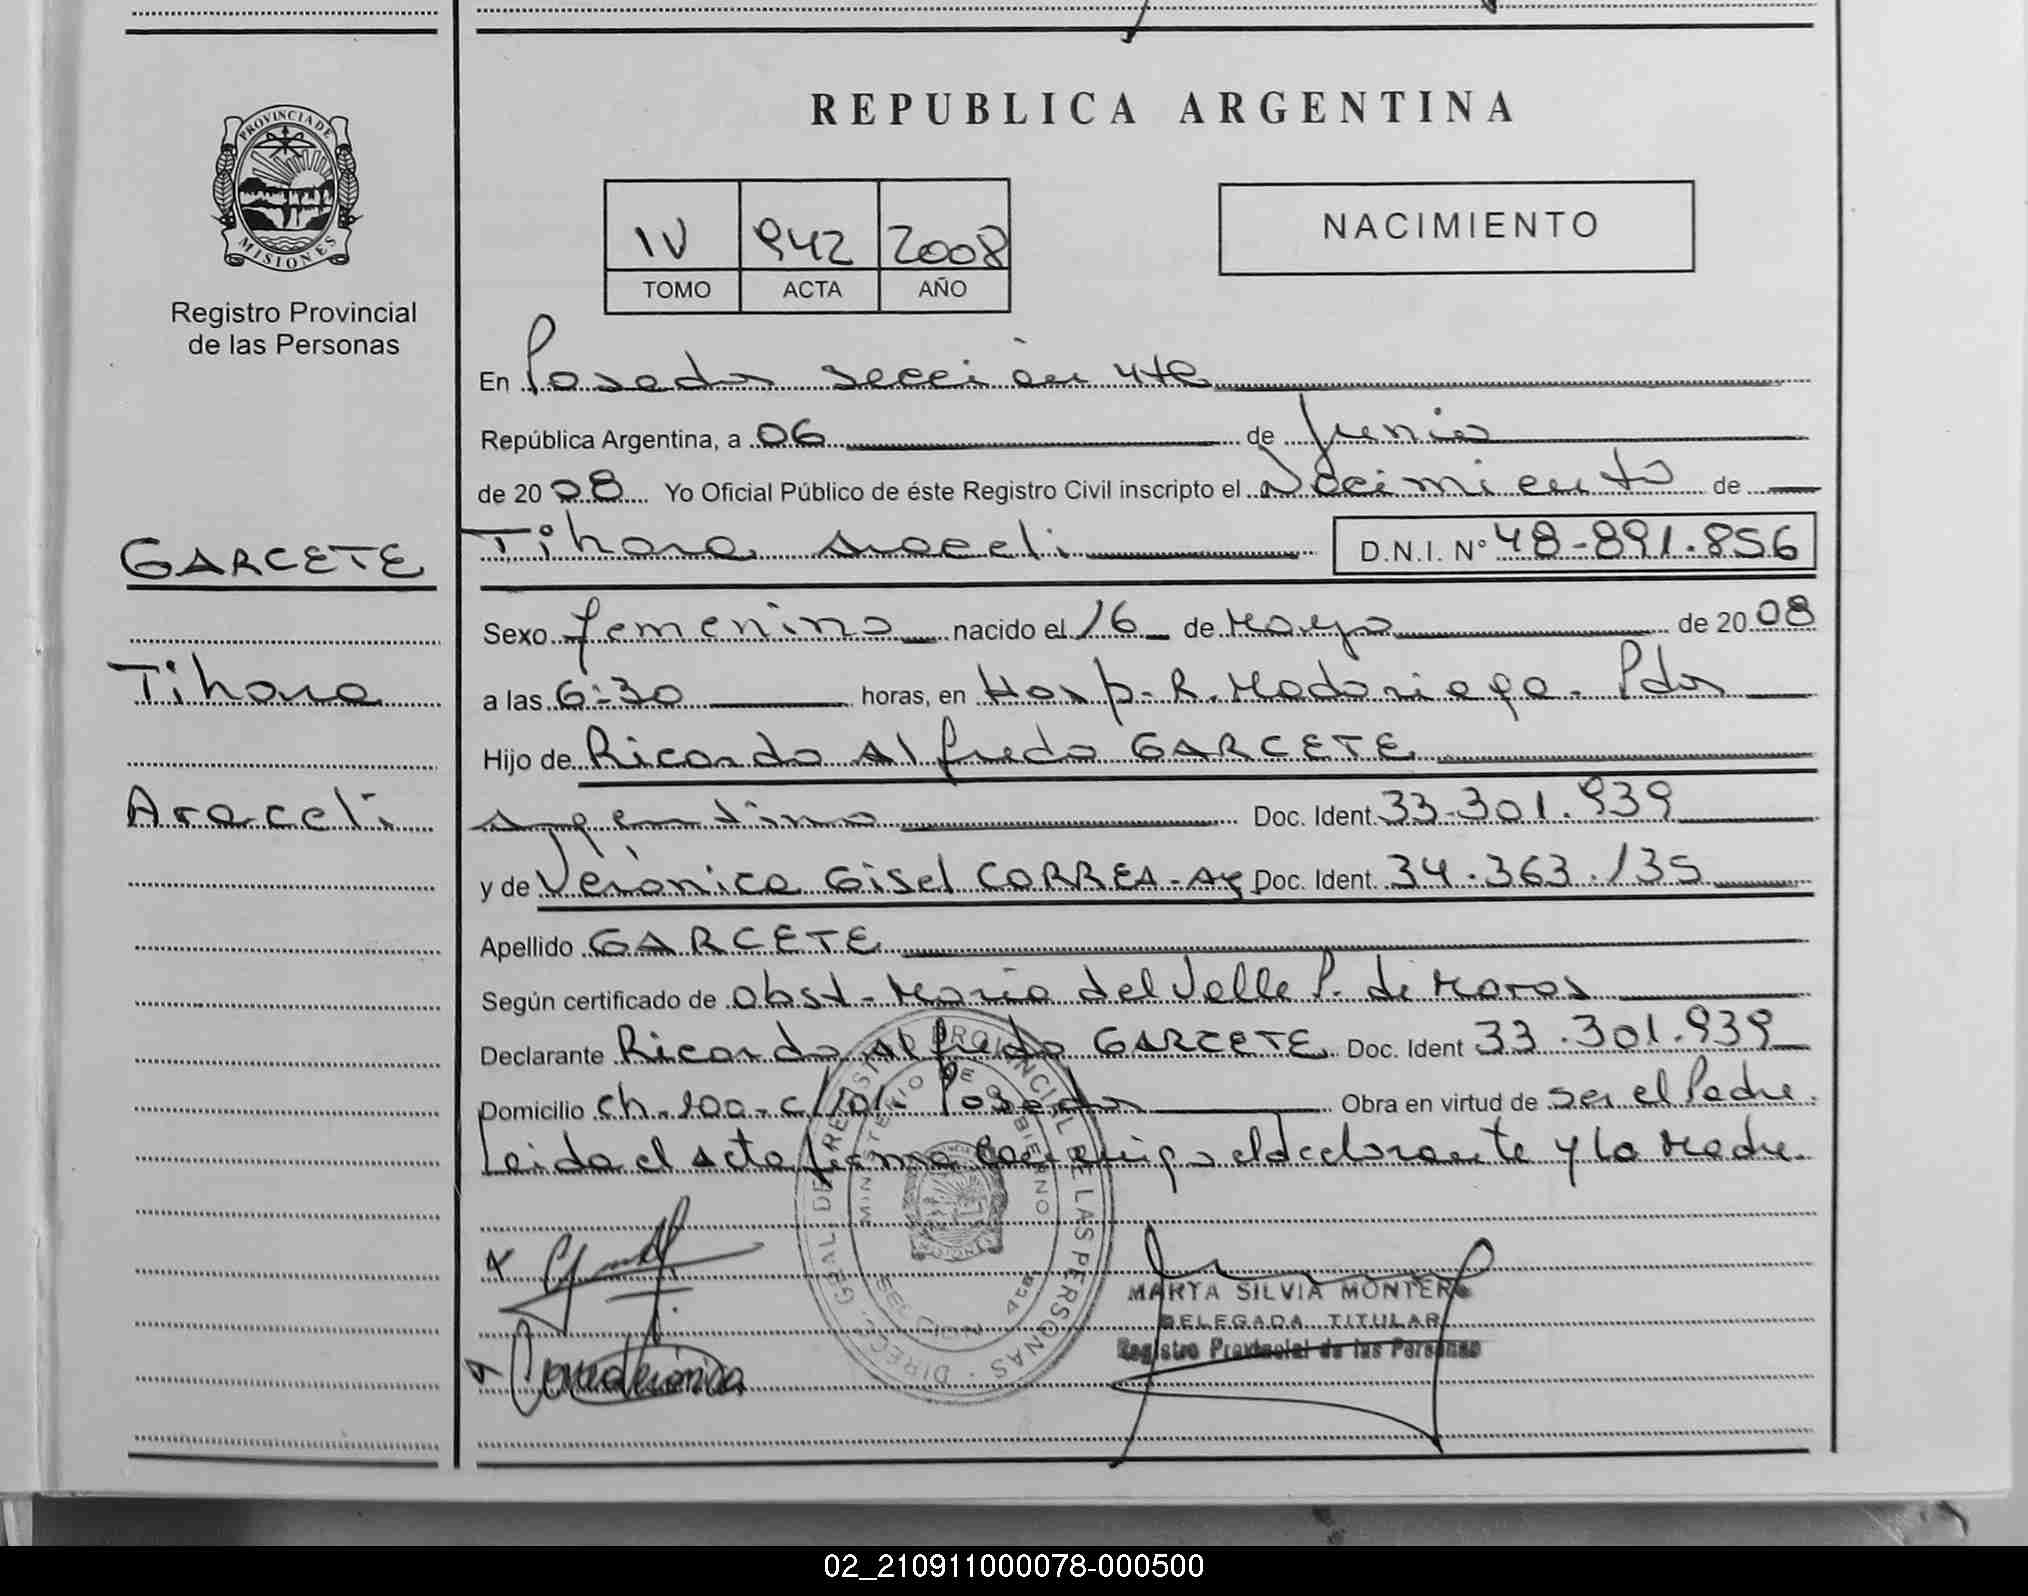 REPUBLICA ARGENTINA
PROVINCIA DE MISIONES
Registro Provincial
de las Personas
IV 942 2008
TOMO ACTA AÑO
NACIMIENTO
En Posadas sección 4ta
República Argentina, a 06 de Junio
de 2008 Yo Oficial Público de éste Registro Civil inscripto el Nacimiento de
Tihara Araceli D.N.I. N° 48-891.856
GARCETE
Tihara
Araceli
Sexo femenino nacido el 16 de Mayo de 2008
a las 6:30 horas, en Hosp. R. Madariaga. Pdas
Hijo de Ricardo Alfredo GARCETE
argentino Doc. Ident. 33.301.939
y de Verónica Gisel CORREA - Ag Doc. Ident. 34.363.135
Apellido GARCETE
Según certificado de obst. María del Valle P. de
Declarante Ricardo Alfredo GARCETE Doc. Ident 33.301.939
Domicilio ch. 100 - Posadas Obra en virtud de ser el Padre.
Leida el acta firma conmigo el declarante y la Madre.
DIREC. GRAL. DE REGISTRO PROVINCIAL DE LAS PERSONAS
MINISTERIO DE GOBIERNO
SECCION 4ta
MARTA SILVIA MONTERO
DELEGADA TITULAR
Registro Provincial de las Personas
Correa Verónica
02_210911000078-000500